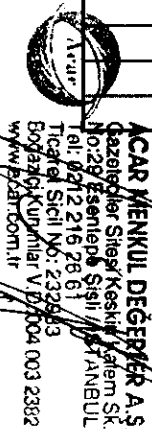 Acar
ACAR MENKUL DEĞERLER A.Ş
Gazeteciler Sitesi Keskin Kalem Sk.
No:29 Esentepe Şişli İSTANBUL
Tel: 0212 216 26 61
Ticaret Sicil No: 232983
Boğaziçi Kurumlar V.D. 004 003 2382
www.acar.com.tr